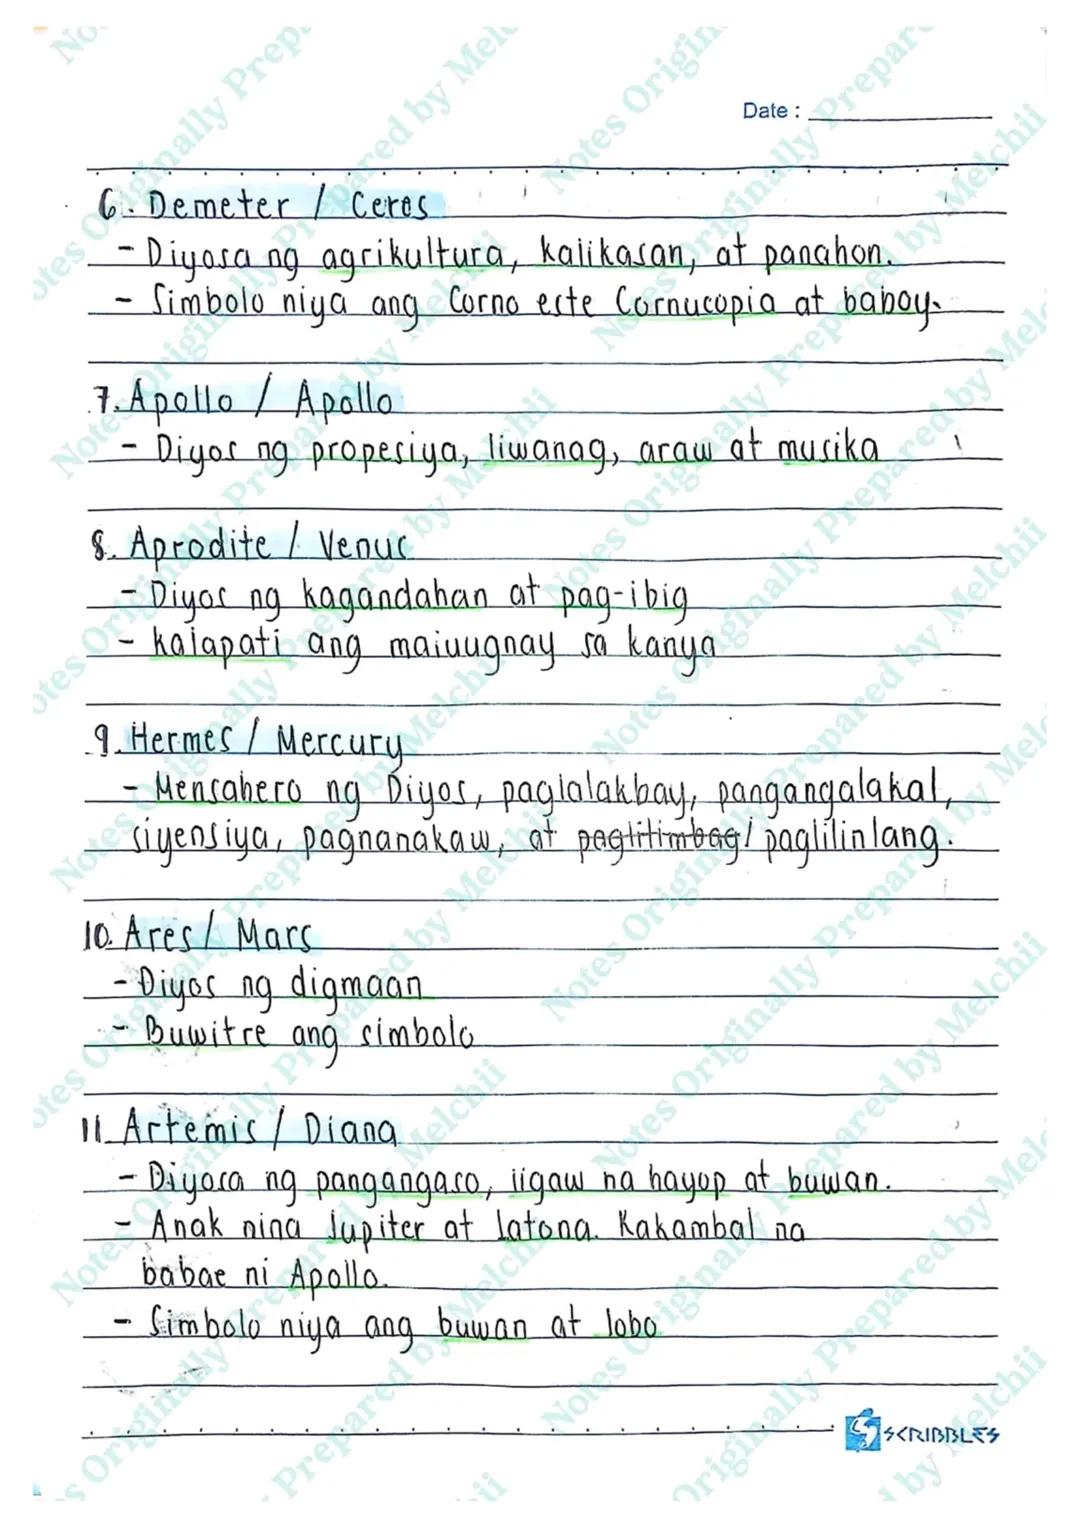 Date :
6. Demeter / Ceres
- Diyosa ng agrikultura, kalikasan, at panahon.
- Simbolo niya ang Corno este Cornucopia at baboy.
7. Apollo / Apollo
- Diyos ng propesiya, liwanag, araw at musika
8. Aprodite / Venus
- Diyos ng kagandahan at pag-ibig
- kalapati ang maiuugnay sa kanya
9. Hermes / Mercury
- Mensahero ng Diyos, paglalakbay, pangangalakal,
siyensiya, pagnanakaw, at paglilimbag/ paglilinlang.
10. Ares / Mars
- Diyos ng digmaan
- Buwitre ang simbolo
11. Artemis / Diana
- Diyosa ng pangangaso, iigaw na hayop at buwan.
- Anak nina Jupiter at Latona. Kakambal na
babae ni Apollo.
- Simbolo niya ang buwan at lobo
SCRIBBLES
Notes Originally Prepared by Melchii